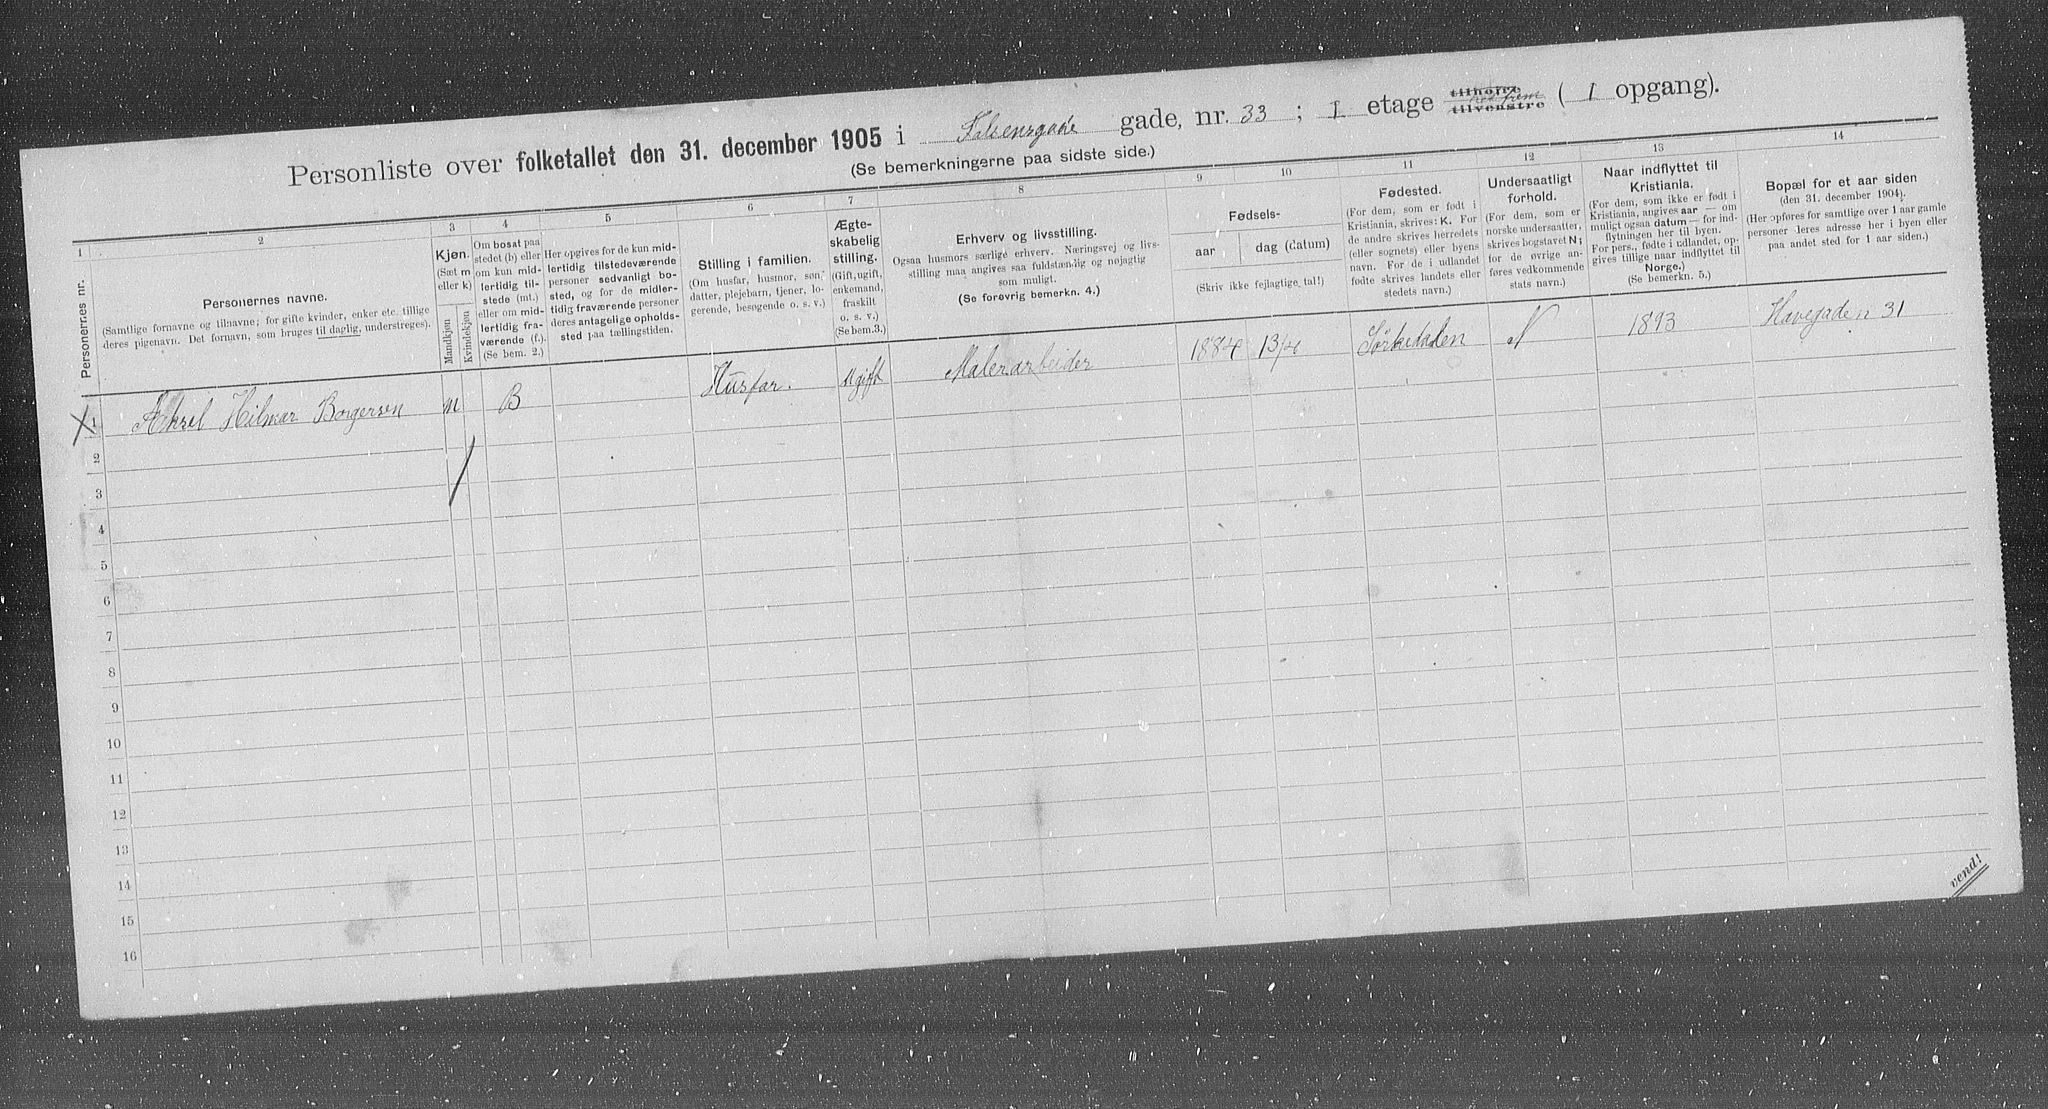 Personliste over folketallet den 31. december 1905 i Falsensgade gade, nr. 33 ; I etage tilhøire tilvenstre ( 1 opgang).
(Se bemerkningerne paa sidste side.)
1 2 3 4 5 6 7 8 9 10 11 12 13 14
Personernes nr.
Personernes navne.
(Samtlige fornavne og tilnavne; for gifte kvinder, enker etc. tillige
deres pigenavn. Det fornavn, som bruges til daglig, understreges).
Kjøn.
(Sæt m
eller k)
Mandkjøn
Kvindekjøn
Om bosat paa
stedet (b) eller
om kun mid-
lertidig til-
stede (mt.)
eller om mid-
lertidig fra-
værende (f.).
(Se bem. 2.)
Her opgives for de kun mid-
lertidig tilstedeværende
personer sedvanligt bo-
sted, og for de midler-
tidig fraværende personer
deres antagelige opholds-
sted paa tællingstiden.
Stilling i familien.
(Om husfar, husmor, søn,
datter, plejebarn, tjener, lo-
gerende, besøgende o. s. v.)
Ægte-
skabelig
stilling.
(Gift, ugift,
enkemand,
fraskilt
o. s. v.)
(Se bem. 3.)
Erhverv og livsstilling.
Ogsaa husmors særlige erhverv. Næringsvej og livs-
stilling maa angives saa fuldstændig og nøjagtig
som muligt.
(Se forøvrig bemerkn. 4.)
Fødsels-
aar
dag (datum)
(Skriv ikke fejlagtige tal!)
Fødested.
(For dem, som er født i
Kristiania, skrives: K. For
de andre skrives herredets
(eller sognets) eller byens
navn. For de i udlandet
fødte skrives landets eller
stedets navn.)
Undersaatligt
forhold.
(For dem, som er
norske undersaatter,
skrives bogstavet N;
for de øvrige an-
føres vedkommende
stats navn.)
Naar indflyttet til
Kristiania.
(For dem, som ikke er født i
Kristiania, angives aar — om
muligt ogsaa datum — for ind-
flytningen her til byen.
For pers., fødte i udlandet, op-
gives tillige naar indflyttet til
Norge.)
(Se bemerkn. 5.)
Bopæl for et aar siden
(den 31. december 1904).
(Her opføres for samtlige over 1 aar gamle
personer deres adresse her i byen eller
paa andet sted for 1 aar siden.)
X 1 Aksel Hilmar Borgersen m B Husfar. Ugift Malerarbeider 1884 13/4 Sørkedalen N 1893 Havegaden 31
2
3
4
5
6
7
8
9
10
11
12
13
14
15
16
vend!